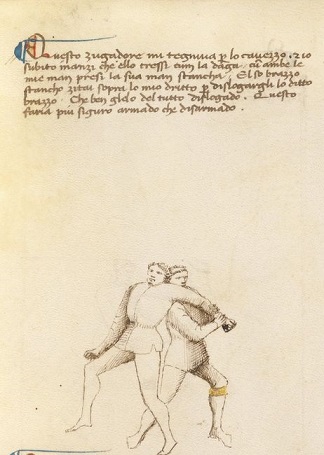 Questo zugadore mi tegniva p lo cavezzo. Et io
subito inanzi che ello tressi cum la daga, cũ ambe le
mie man presi la sua man stancha. El so brazzo
stancho zitai sopra lo mio dritto p dislogargli lo ditto
brazzo. Che ben glelo del tutto dislogado. Questo
faria piu siguro armado che disarmado.